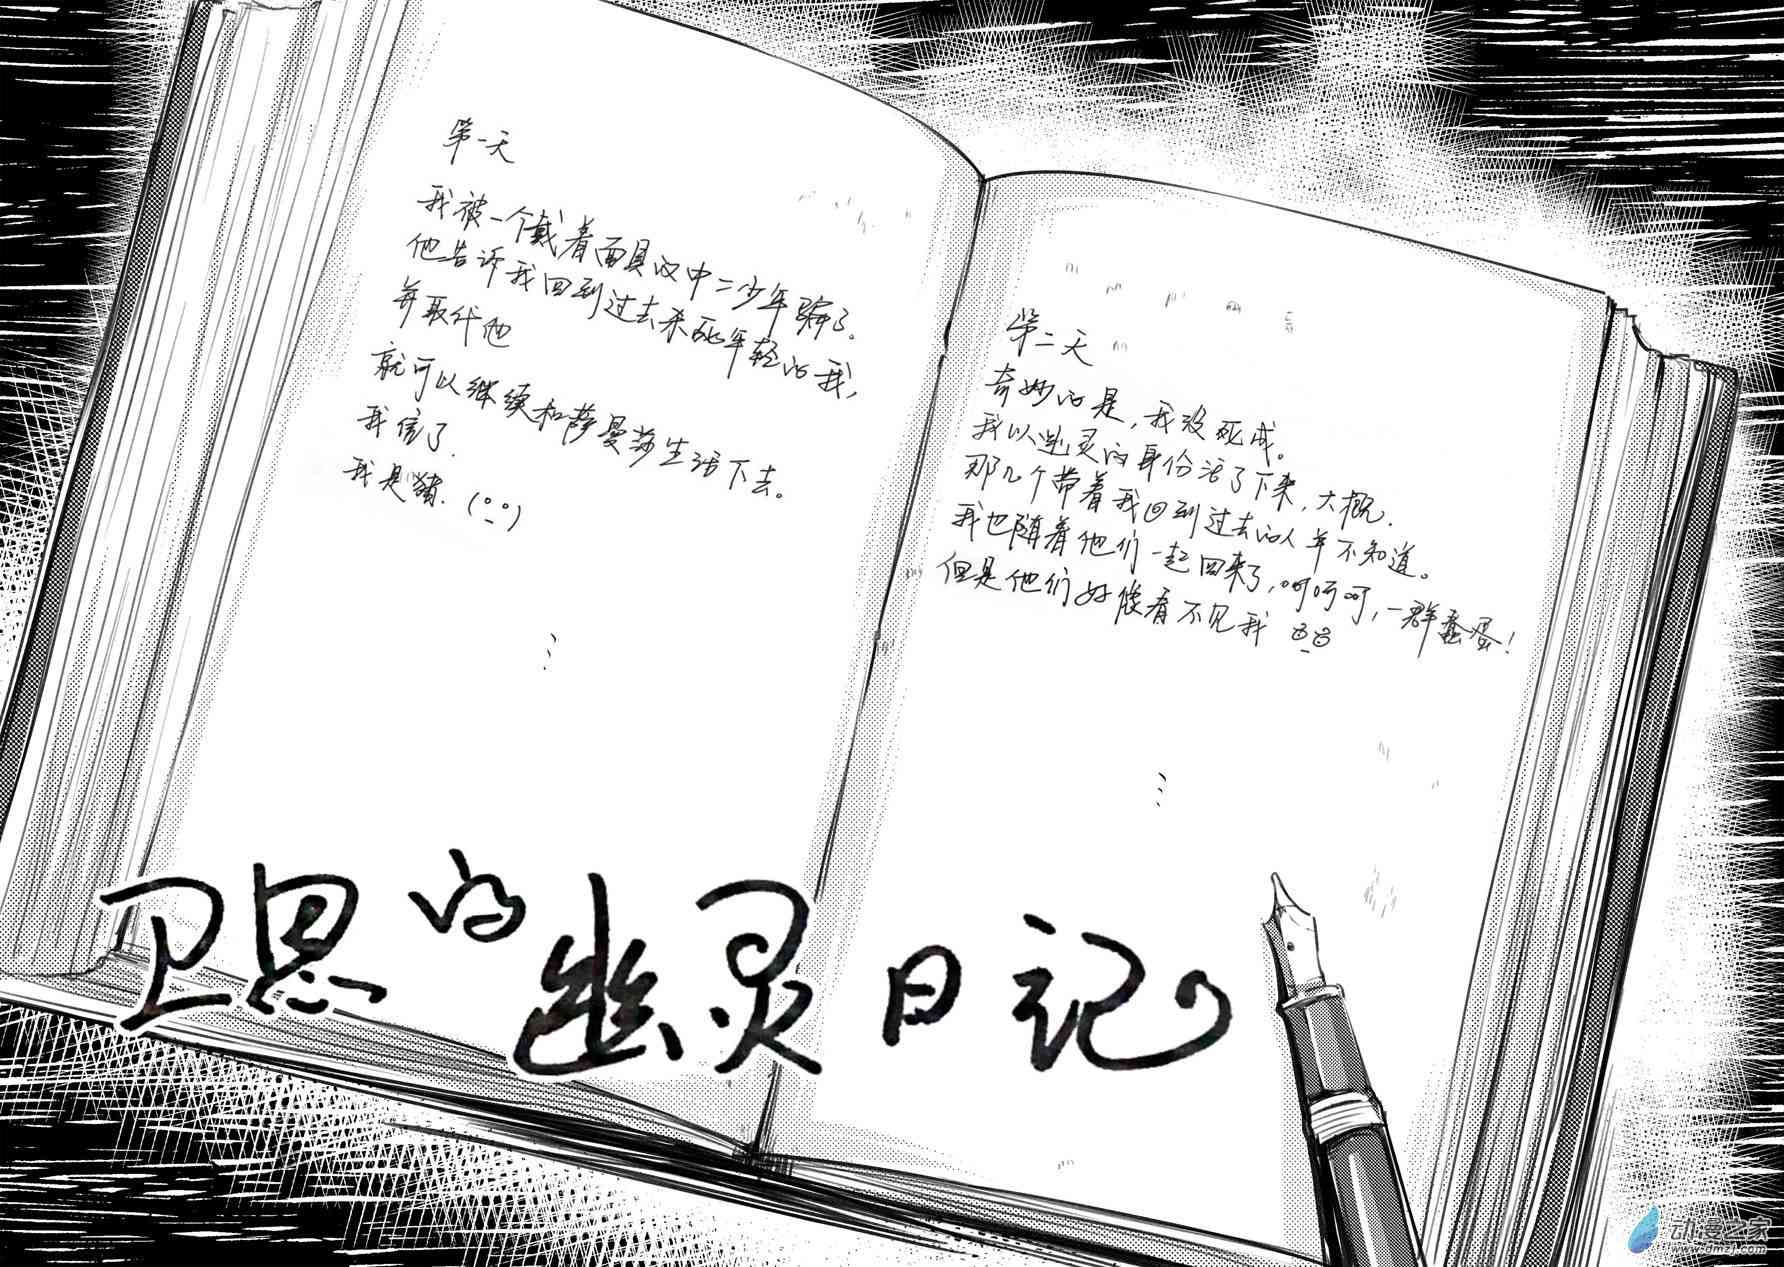 第一天
我被一个戴着面具的中二少年骗了。
他告诉我回到过去杀死年轻的我，
并取代他
就可以继续和萨曼莎生活下去。
我信了.
我是猪.
第二天
奇妙的是，我没死成。
我以幽灵的身份活了下来，大概.
那几个带着我回到过去的人并不知道。
我也随着他们一起回来了，呵呵呵，一群蠢蛋！
但是他们好像看不见我
卫思的幽灵日记
动漫之家
www.dmzj.com